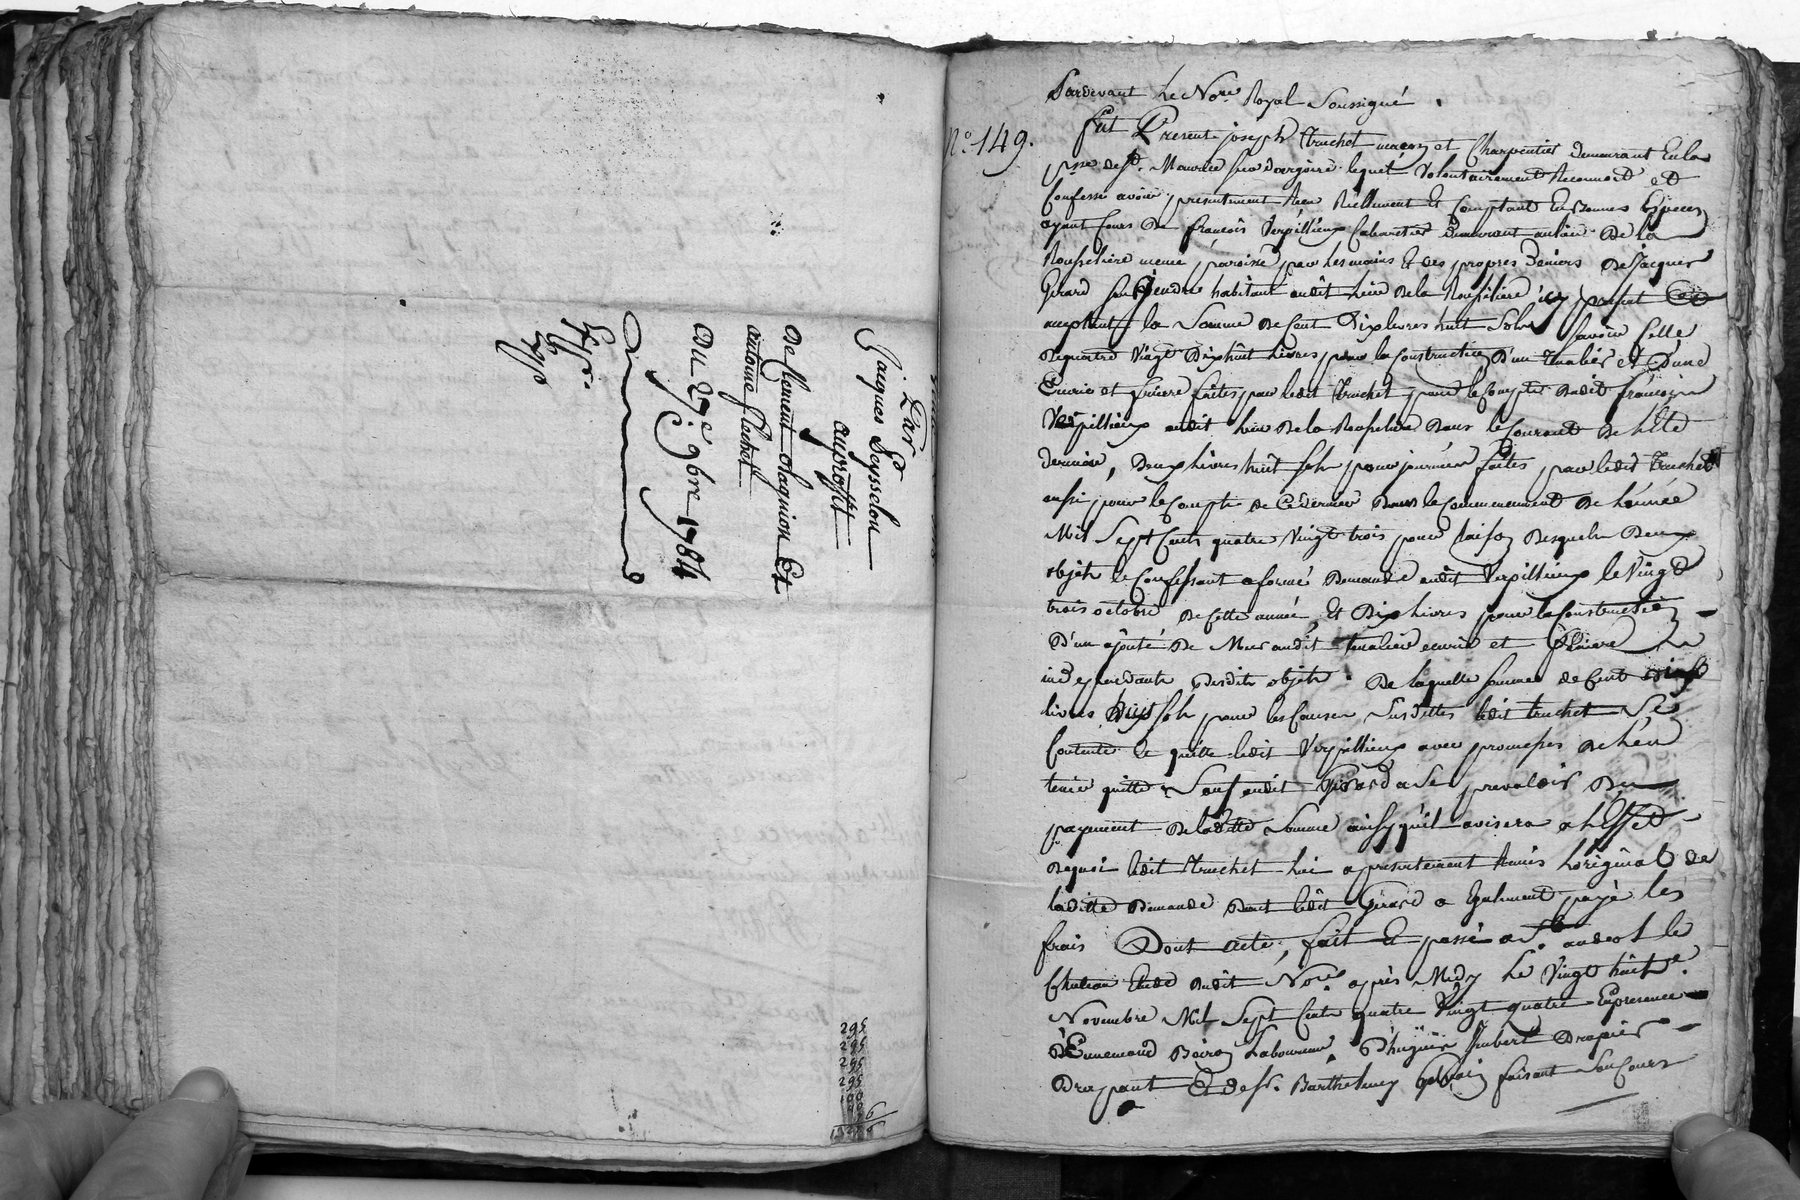 Par
Jacques Seysselon
au proffit
De flemant chagnion Et
antoine flachet
Du 27e 9bre 1784
295
295
295
295
Pardevant Le Nore. Royal Soussigné
No. 149.
fut Present joseph truchet maçon et Charpentier demeurant En la
psse de St. Maurice sur dargoire lequel volontairement Reconnoit et
Confesse avoir presentement Receu Réellement Et Comptant En Bonnes Especes
ayant Cours De françois Verpillieux Cabaretier demeurant au lieu De la
Roussiliere meme paroisse par les mains Et des propres Deniers De Jacques
Girard son Gendre habitant audit lieu de la Roussiliere icy present Et
acceptant la Somme de Cent Dix livres huit Sols Savoir Celle
de quatre Vingt Dix huit livres pour la Construction D'un tenalier et D'une
Ecurie et feniere faites par ledit truchet pour le Compte dudit françois
Verpillieux audit lieu De la Rousseliere Dans le Courant de l'Eté
dernier, Deux livres huit sols pour journées faites par ledit truchet
aussi pour le Compte de Ce dernier Dans le Commencement De l'année
Mil Sept Cents quatre Vingt trois pour raison Desquels Deux
objets le Confessant a formé Demande audit Verpillieux le Vingt
trois octobre De Cette année, Et Dix livres pour la Construction
D'un ajouté De Mur audit tenalier ecurie et feniere
independante desdits objets. De laquelle somme de Cent dix
livres huit sols pour les Causes Susdittes ledit truchet Se
Contente Et quitte ledit Verpillieux avec promesses De l'en
tenir quitte, Sauf audit Girard a Se prevaloir Du
payement De laditte Somme ainsy qu'il avisera a l'Effet
De quoi ledit truchet lui a presentement Remis l'original de
laditte Demande Dont ledit Girard a Egalement payé les
frais Dont acte, fait Et passé a St. andeol le
Chateau Etude dudit Nore. après Midy Le Vingt huite.
Novembre Mil Sept Cents quatre Vingt quatre En presence
D'Ennemond Boiron Laboureur, D'hugues Jubert Drapier
Drapant Et de sr. Barthelemy faisant Son Cours